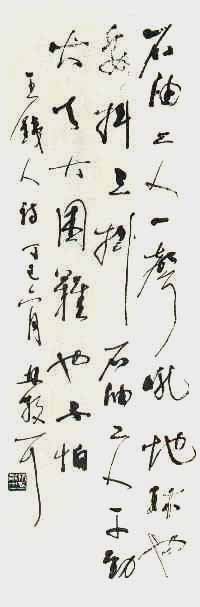 石油工人一聲吼地球也
要抖三抖石油工人干劲
大天大困難也不怕
王鐵人詩丁巳月林散耳